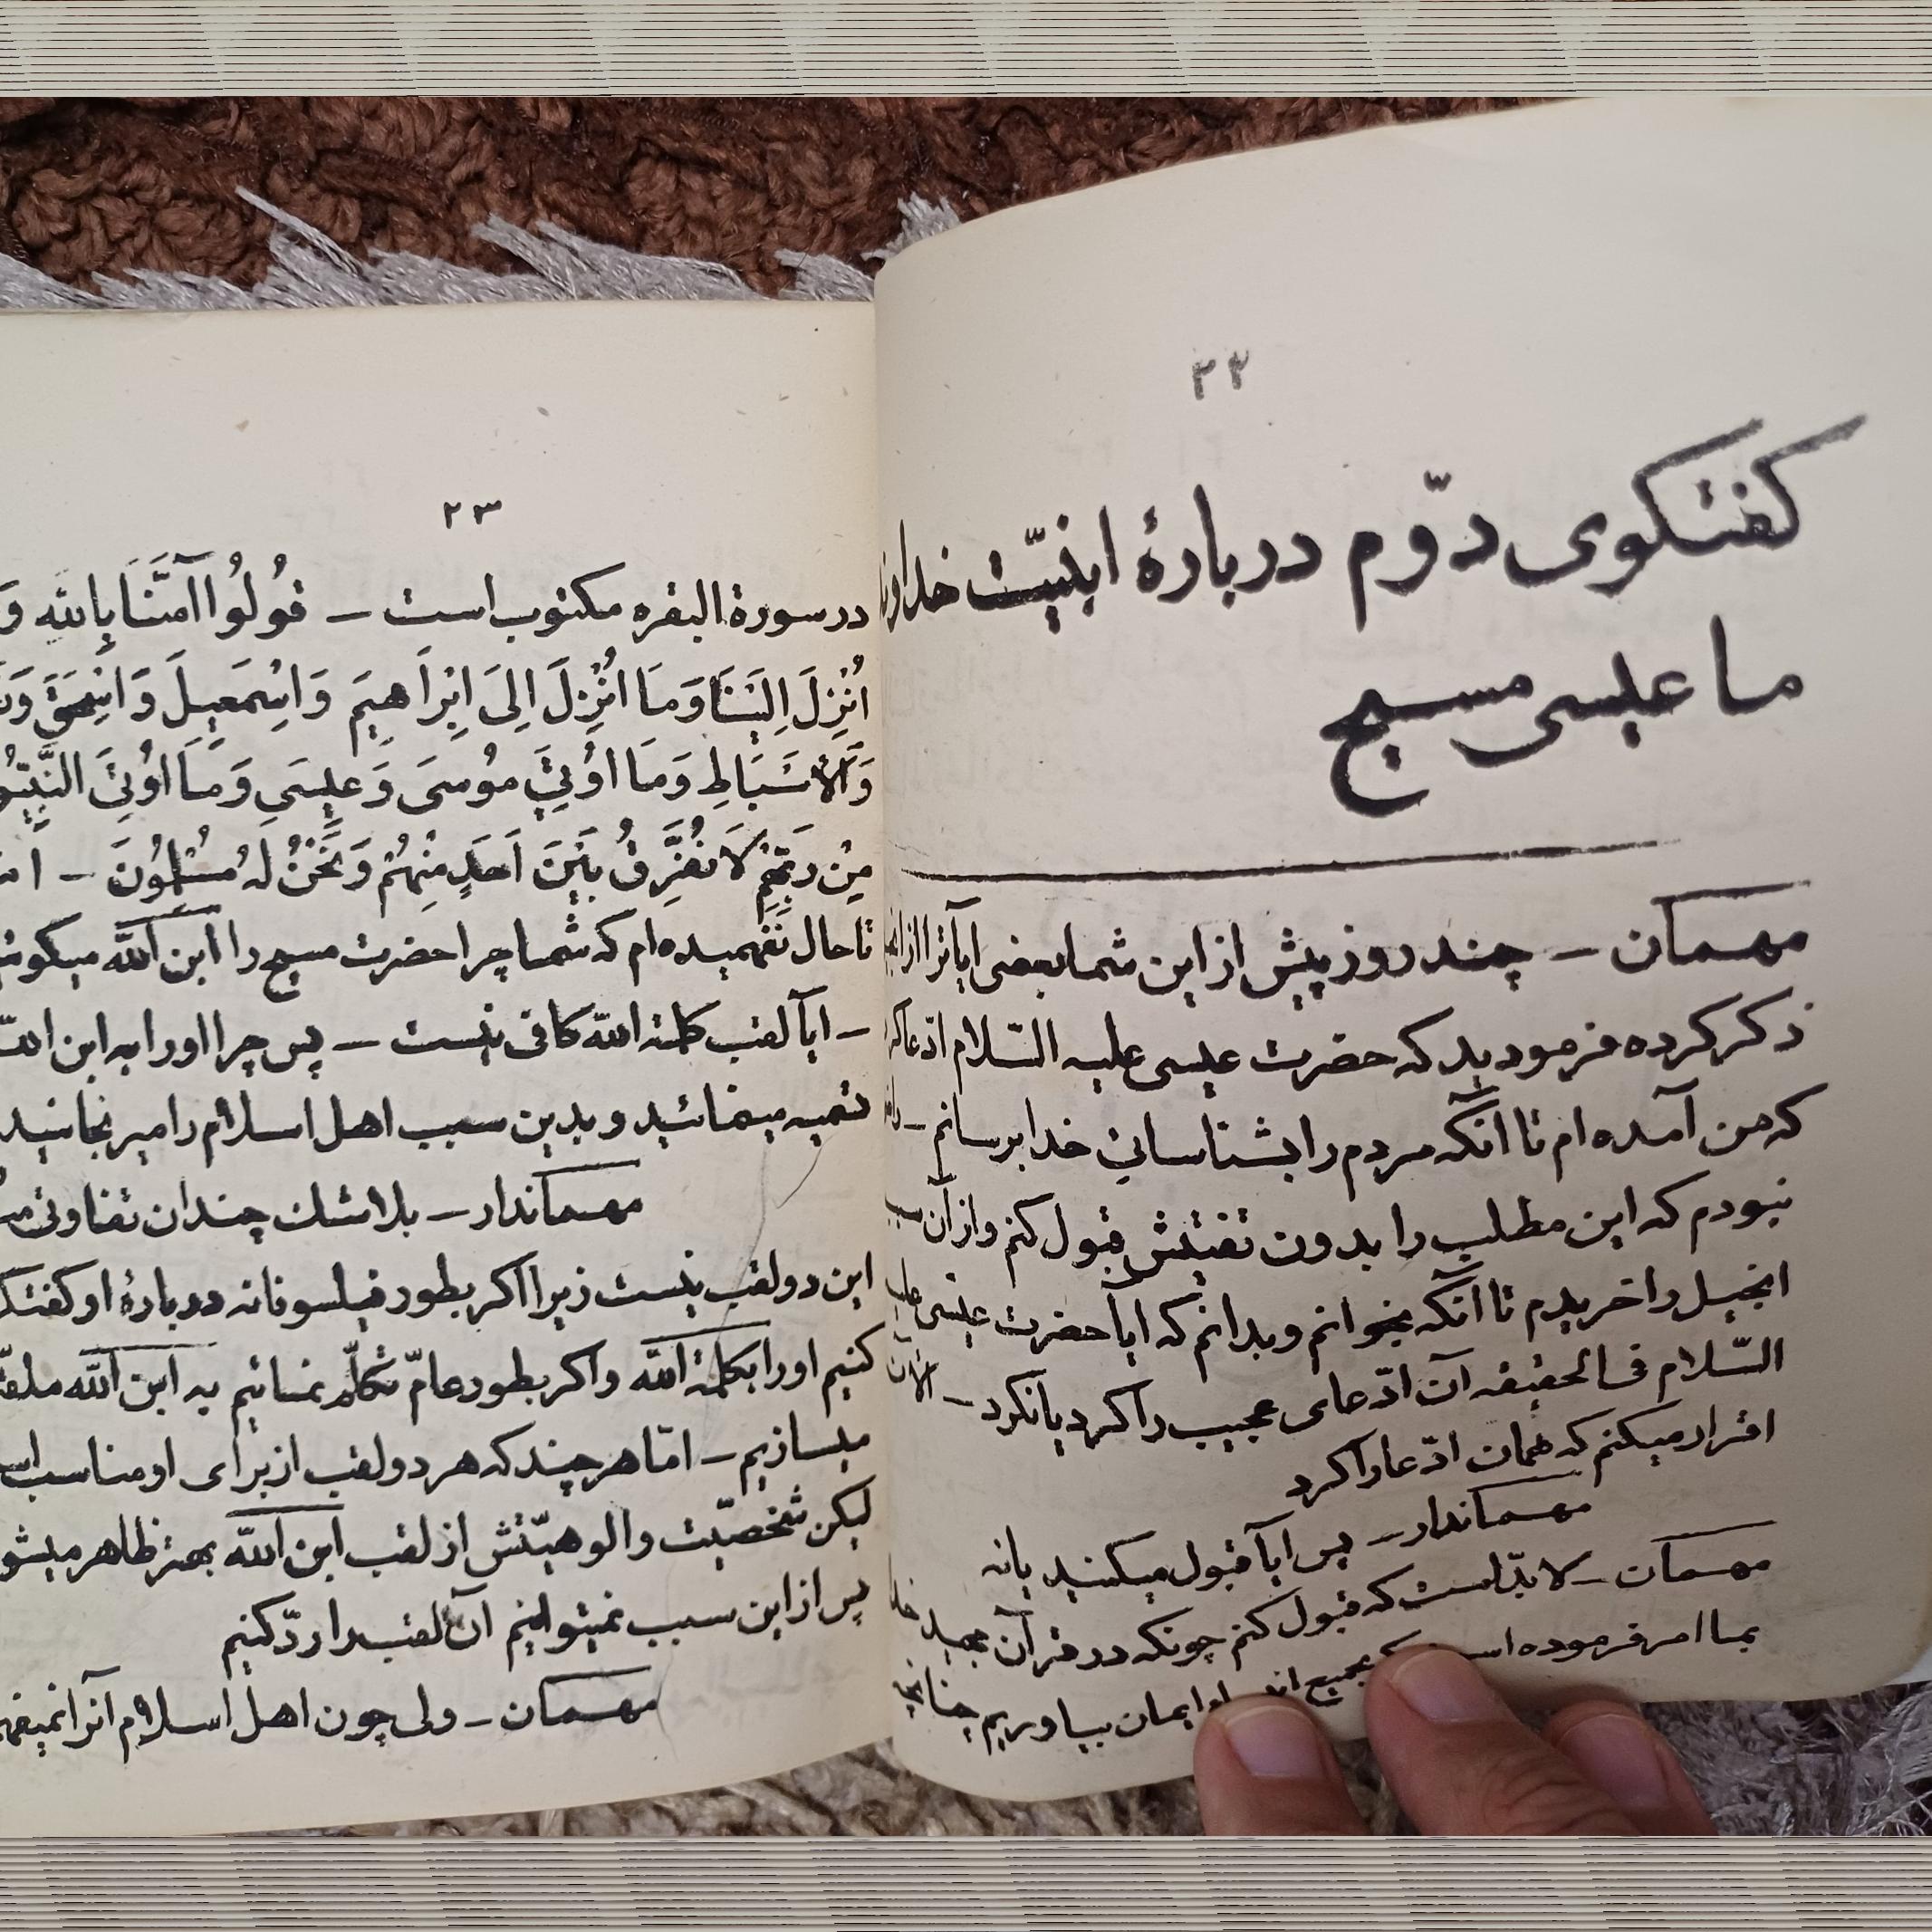 ۲۲
کفتکوی دوّم دربارهٔ ابنیّت
ما عیسی مسیح
مهمان – چند روز پیش از این شما بعضی ایآترا از
ذکر کرده فرمودید که حضرت عیسی علیه السّلام ادّعا کرد
که من آمده ام تا آنکه مردم را بشناسائی خدا برسانم –
نبودم که این مطلب را بدون تفتیش قبول کنم و از آن
انجیل را خریدم تا آنکه بخوانم و بدانم که ایآ حضرت عیسی
السّلام فی الحقیقه آن ادّعای عجیب را کرد یا نکرد – الآن
اقرار میکنم که همان ادّعا را کرد
مهماندار – پس ایآ قبول میکنید یا نه
مهمان – لابدّ است که قبول کنم چونکه در قرآن مجید
بما امر فرموده بجمیع ایمان بیاوریم چنانچه
۲۳
در سورة البقره مکتوب است – قُولُوا آمَنَّا بِاللهِ وَ
اُنْزِلَ اِلَیْنَا وَمَا اُنْزِلَ اِلیَ اِبْرَاهِیمَ وَ اِسْمَعِیلَ وَ اِسْحَقَ
وَالاَسْبَاطِ وَمَا اُوتِیَ مُوسَی وَ عِیسَی وَمَا اُوتِیَ
مِنْ رَبِّهِمْ لاَ نُفَرِّقُ بَیْنَ اَحَدٍ مِنْهُمْ وَ نَحْنُ لَهُ مُسْلِمُونَ –
تا حال نفهمیده ام که شما چرا حضرت مسیح را ابن الله
– ایآ لقب کلمة الله کافی نیست – پس چرا او را به ابن الله
تسمیه مینمائید و بدین سبب اهل اسلام را میرنجانید
مهماندار – بلا شك چندان تفاوتی
این دو لقب نیست زیرا اکر بطور فیلسوفانه دربارهٔ او
کنیم او را بکلمة الله و اکر بطور عامّ تکلّم نمائیم به ابن الله
میسازیم – امّا هر چند که هر دو لقب از برای او مناسب
لیکن شخصیّت و الوهیّتش از لقب ابن الله بهتر ظاهر
پس از این سبب نمیتوانیم آن لقب را ردّ کنیم
مهمان – ولی چون اهل اسلام آنرا